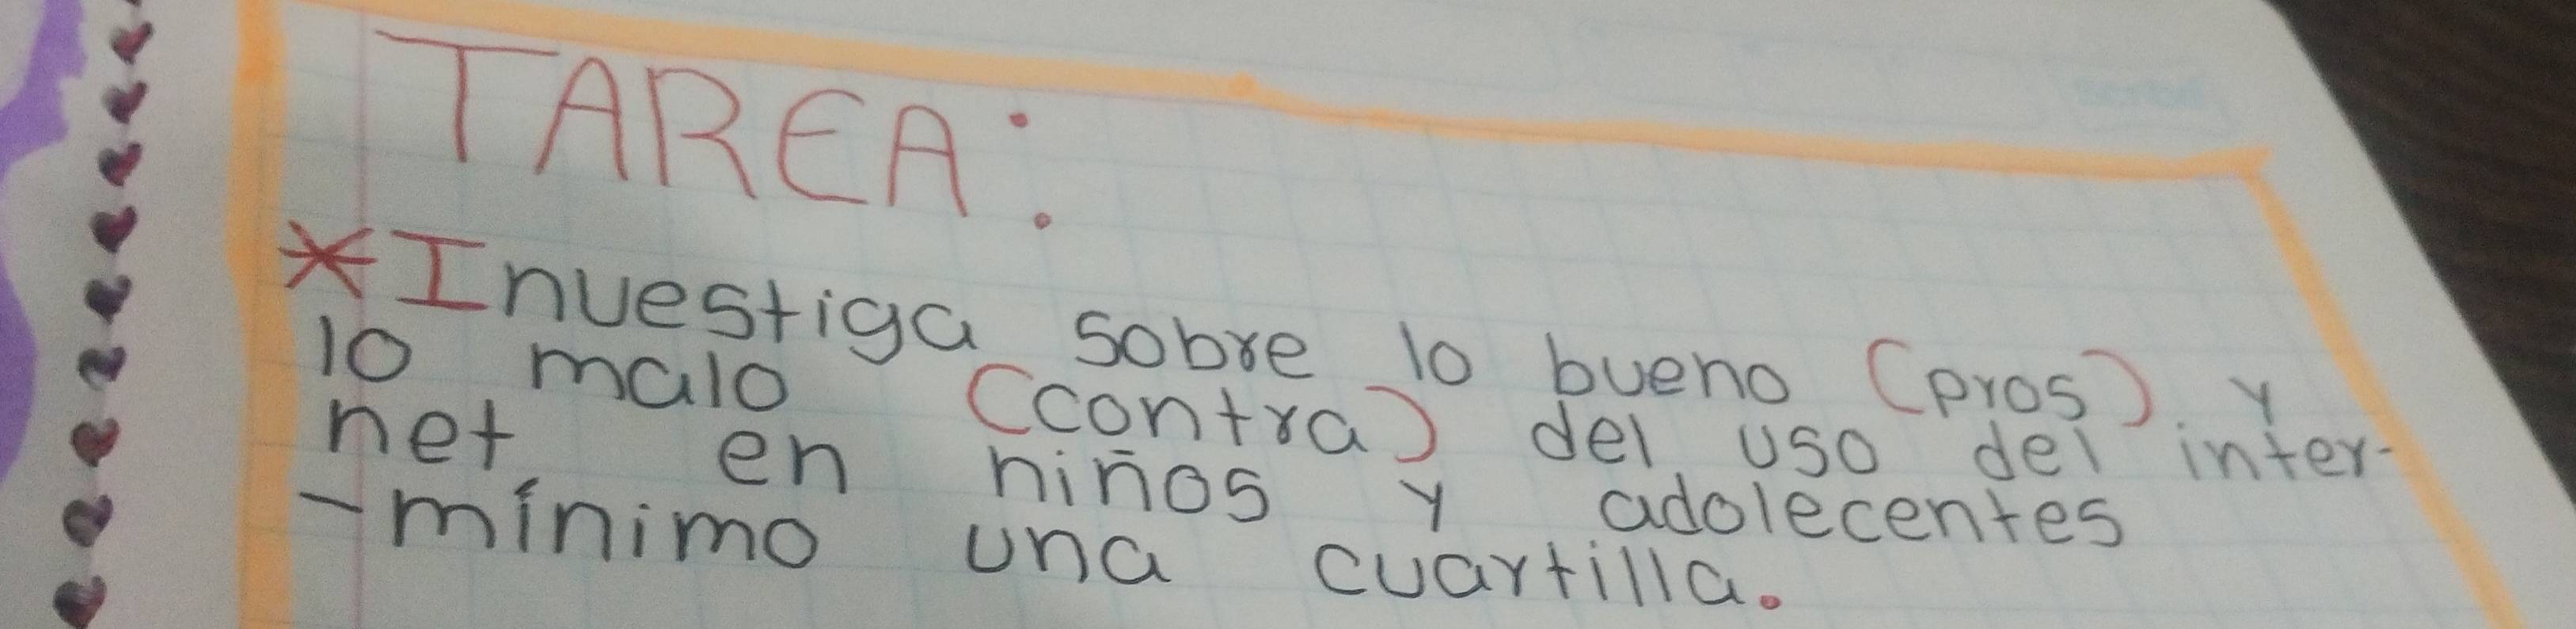 TAREA:
*Investiga sobre lo bueno (pros) y
lo malo (contra) del uso del inter-
net en niños y adolecentes
-mínimo una cuartilla.